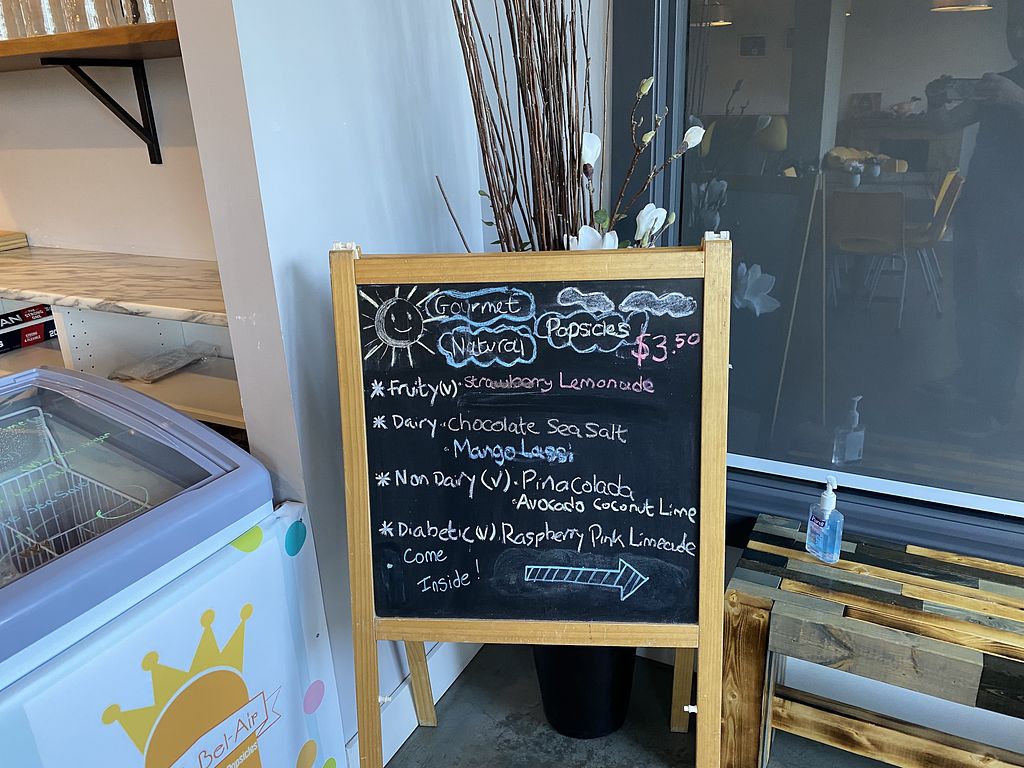 Gourmet
Natural
Popsicles
$3.50
* Fruity(v). Strawberry Lemonade
* Dairy. Chocolate Sea Salt
. Mango Lassi
* Non Dairy (v). Pinacolada
. Avocado Coconut Lime
* Diabetic(v). Raspberry Pink Limeade
. Come
Inside!
Bel-Air
Popsicles
PURELL